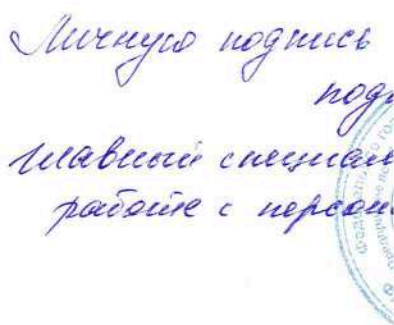 Личную подпись
подп
главный специал
работе с персон